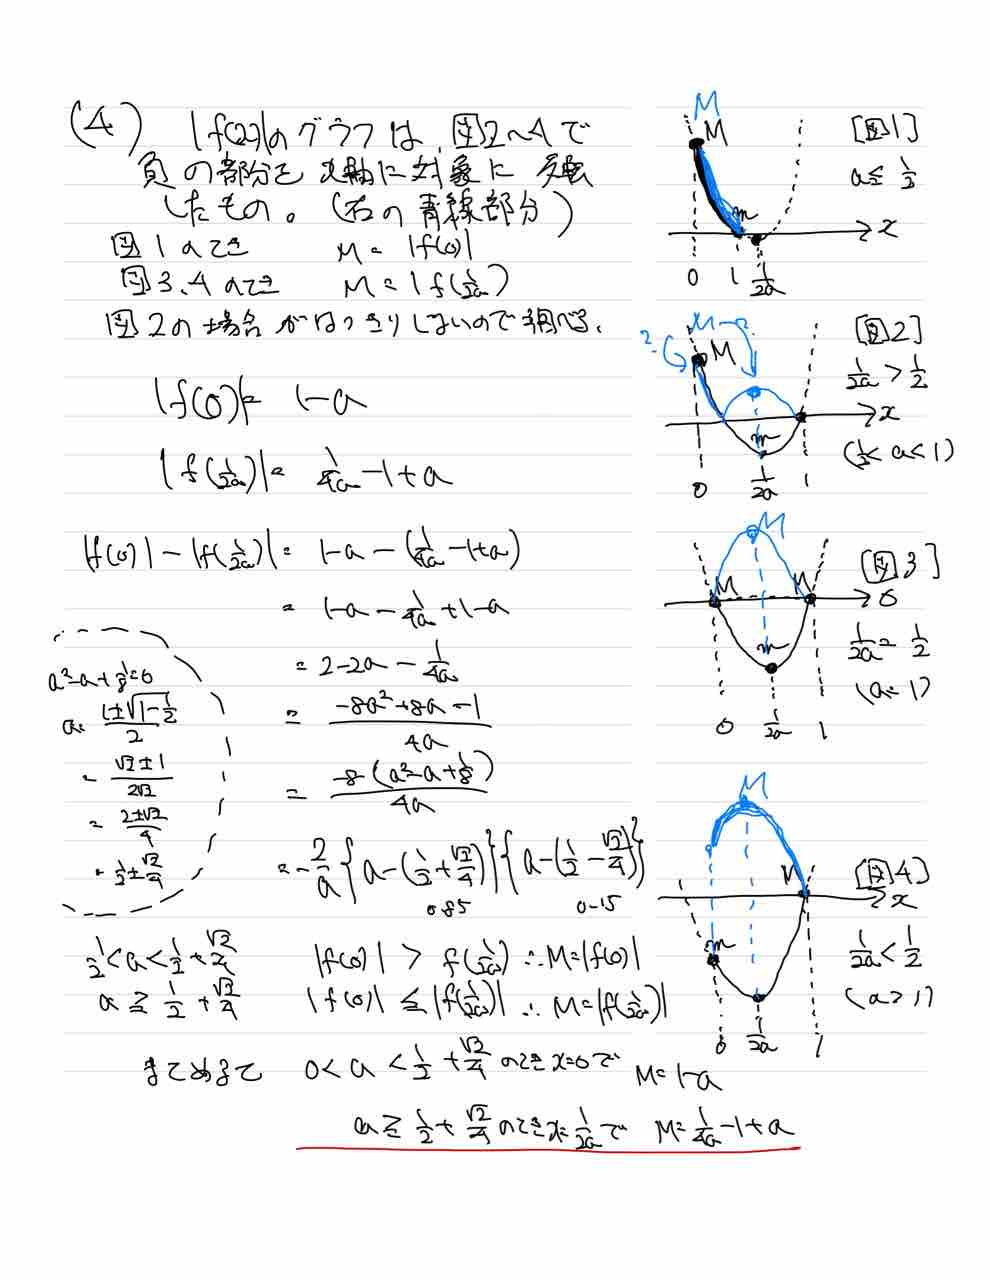 (4) |f(x)|のグラフは、図2〜4で
負の部分をx軸に対象に反転
したもの。(右の青線部分)
図1のとき M = |f(0)|
図3、4のとき M = |f(1/2a)|
図2の場合がはっきりしないので調べる。
|f(0)| = 1-a
|f(1/2a)| = 1/4a -1+a
|f(0)| - |f(1/2a)| = 1-a - (1/4a -1+a)
= 1-a - 1/4a +1-a
= 2-2a - 1/4a
= (-8a²+8a-1)/4a
= -8(a²-a+1/8)/4a
= -2/a {a-(1/2+√2/4)}{a-(1/2-√2/4)}
0.85 0.15
a²-a+1/8=0
a= (1±√(1-1/2))/2
= (√2±1)/2√2
= (2±√2)/4
= 1/2±√2/4
1/2<a<1/2+√2/4 |f(0)| > f(1/2a) ∴M=|f(0)|
a≧1/2+√2/4 |f(0)| ≦ |f(1/2a)| ∴M=|f(1/2a)|
まとめると 0<a<1/2+√2/4 のときx=0で M=1-a
a≧1/2+√2/4 のときx=1/2aで M=1/4a-1+a
M
M
[図1]
a≦1/2
m
x
0 1 1/2a
M→?
?
M
[図2]
1/2a>1/2
x
m
(1/2<a<1)
0 1/2a 1
M
[図3]
M M
0
1/2a=1/2
m
(a=1)
0 1/2a 1
M
[図4]
M
x
m
1/2a<1/2
(a>1)
0 1/2a 1